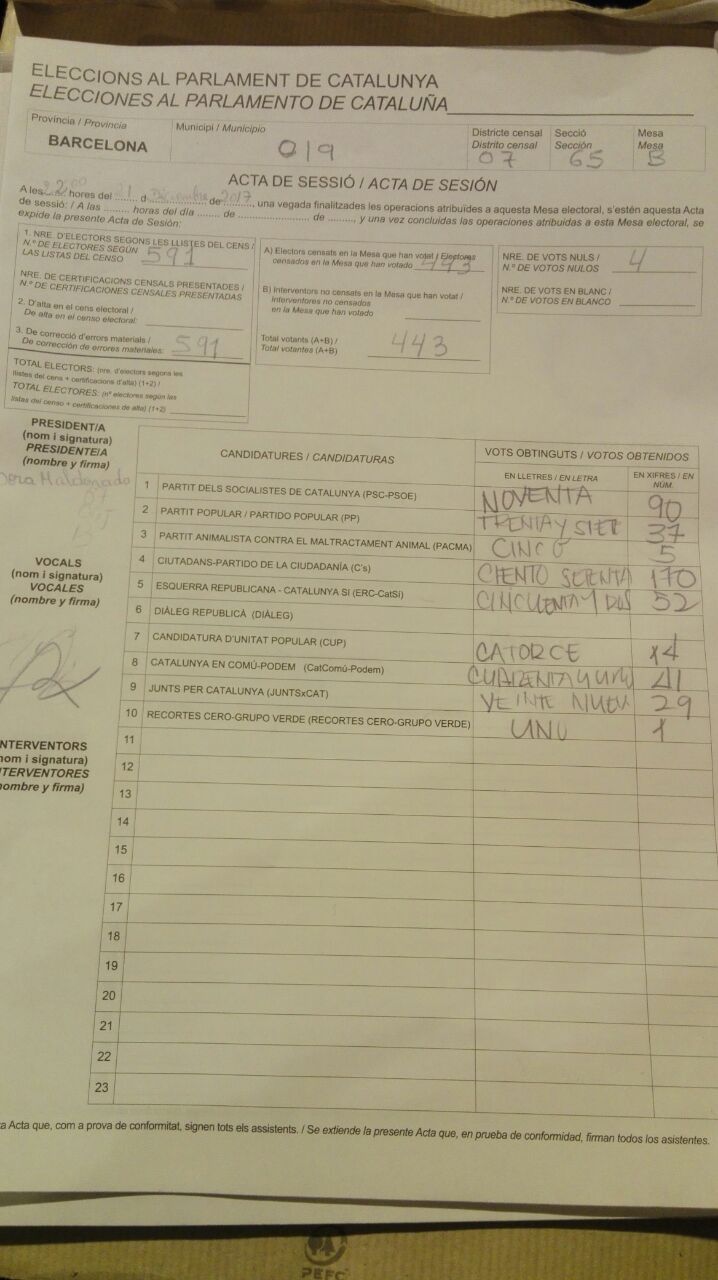 ELECCIONS AL PARLAMENT DE CATALUNYA
ELECCIONES AL PARLAMENTO DE CATALUÑA
Província / Provincia
BARCELONA
Municipi / Municipio
019
Districte censal
Distrito censal
07
Secció
Sección
65
Mesa
Mesa
B
ACTA DE SESSIÓ / ACTA DE SESIÓN
A les 22'00 hores del 21 d Diciembre de 2017, una vegada finalitzades les operacions atribuïdes a aquesta Mesa electoral, s'estén aquesta Acta
de sessió: / A las ........ horas del día ........ de .................... de ........, y una vez concluidas las operaciones atribuidas a esta Mesa electoral, se
expide la presente Acta de Sesión:
1. NRE. D'ELECTORS SEGONS LES LLISTES DEL CENS /
N.º DE ELECTORES SEGÚN
LAS LISTAS DEL CENSO
591
NRE. DE CERTIFICACIONS CENSALS PRESENTADES /
N.º DE CERTIFICACIONES CENSALES PRESENTADAS
2. D'alta en el cens electoral /
De alta en el censo electoral:
3. De correcció d'errors materials /
De corrección de errores materiales:
591
TOTAL ELECTORS: (nre. d'electors segons les
llistes del cens + certificacions d'alta) (1+2) /
TOTAL ELECTORES: (nº electores según las
listas del censo + certificaciones de alta) (1+2)
A) Electors censats en la Mesa que han votat / Electores
censados en la Mesa que han votado
443
B) Interventors no censats en la Mesa que han votat /
Interventores no censados
en la Mesa que han votado
Total votants (A+B) /
Total votantes (A+B)
443
NRE. DE VOTS NULS /
N.º DE VOTOS NULOS
4
NRE. DE VOTS EN BLANC /
N.º DE VOTOS EN BLANCO
PRESIDENT/A
(nom i signatura)
PRESIDENTE/A
(nombre y firma)
Maldonado
07
65
B
VOCALS
(nom i signatura)
VOCALES
(nombre y firma)
INTERVENTORS
nom i signatura)
NTERVENTORES
nombre y firma)
CANDIDATURES / CANDIDATURAS
VOTS OBTINGUTS / VOTOS OBTENIDOS
EN LLETRES / EN LETRA
EN XIFRES / EN
NÚM.
1 PARTIT DELS SOCIALISTES DE CATALUNYA (PSC-PSOE) NOVENTA 90
2 PARTIT POPULAR / PARTIDO POPULAR (PP) TRENIA Y SIETE 37
3 PARTIT ANIMALISTA CONTRA EL MALTRACTAMENT ANIMAL (PACMA) CINCO 5
4 CIUTADANS-PARTIDO DE LA CIUDADANÍA (C's) CIENTO SETENTA 170
5 ESQUERRA REPUBLICANA - CATALUNYA SI (ERC-CatSí) CINCUENTA Y DOS 52
6 DIÀLEG REPUBLICÀ (DIÀLEG)
7 CANDIDATURA D'UNITAT POPULAR (CUP) CATORCE 14
8 CATALUNYA EN COMÚ-PODEM (CatComú-Podem) CUARENTA Y UNO 41
9 JUNTS PER CATALUNYA (JUNTSxCAT) VEINTE NUEV 29
10 RECORTES CERO-GRUPO VERDE (RECORTES CERO-GRUPO VERDE) UNO 1
11
12
13
14
15
16
17
18
19
20
21
22
23
a Acta que, com a prova de conformitat, signen tots els assistents. / Se extiende la presente Acta que, en prueba de conformidad, firman todos los asistentes.
PEFC